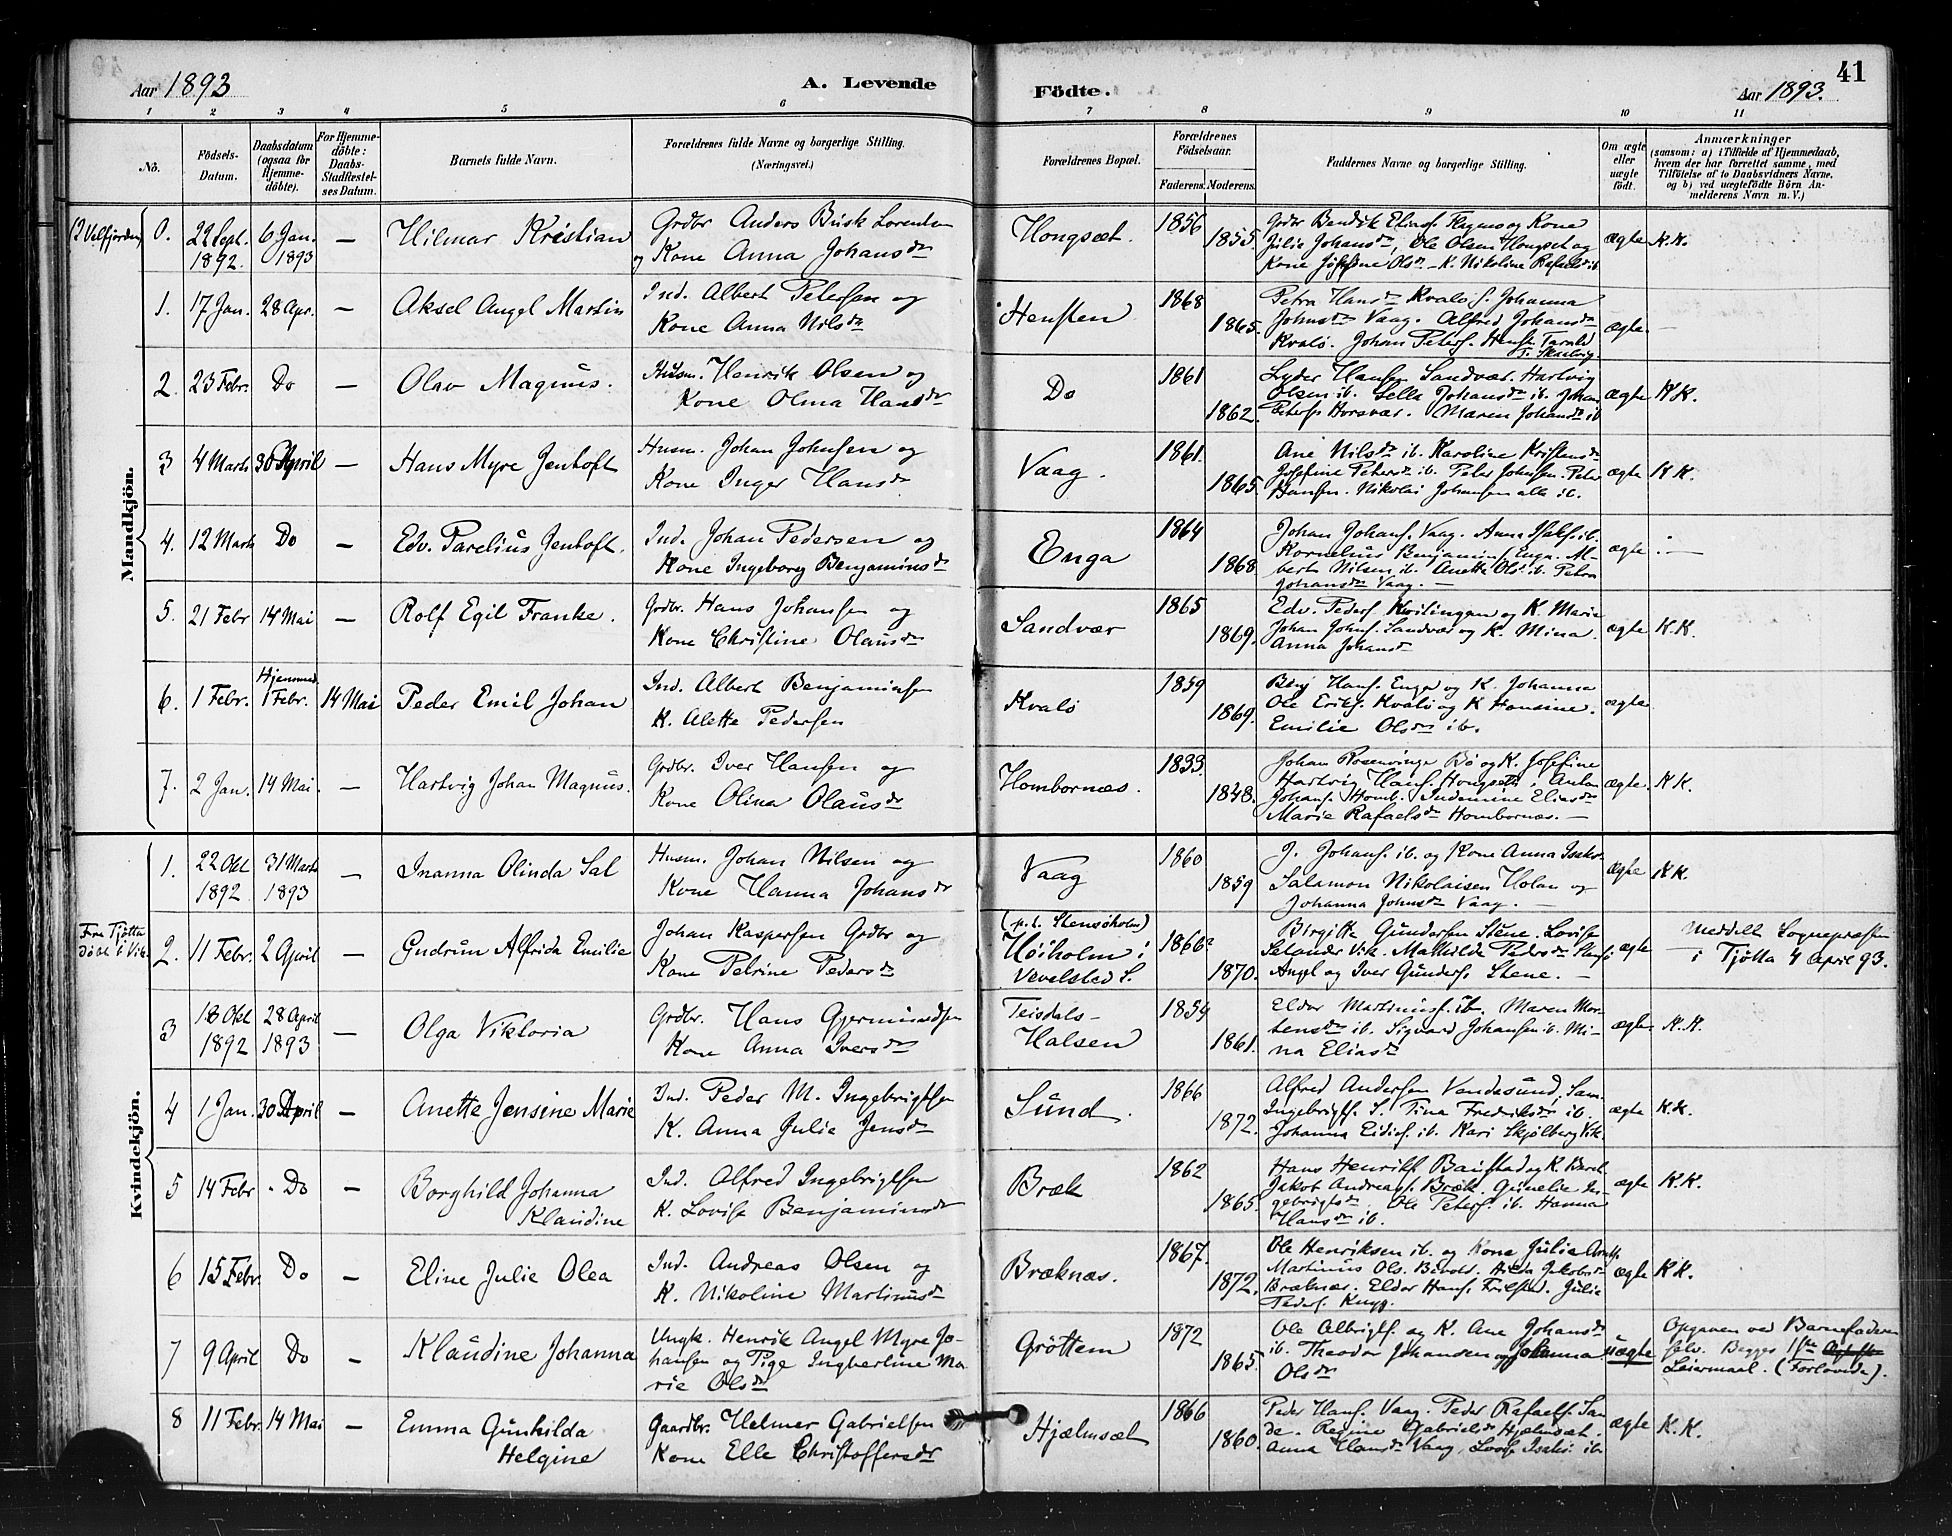 41
Aar 1893 A. Levende Födte. Aar 1893.
1 2 3 4 5 6 7 8 9 10 11
No. Födsels-Datum. Daabsdatum (ogsaa for Hjemme-döbte). For Hjemme-döbte: Daabs-Stadfæstelses Datum. Barnets fulde Navn. Forældrenes fulde Navne og borgerlige Stilling. (Næringsvei.) Forældrenes Bopæl. Forældrenes Födselsaar. Faderens. Moderens. Faddernes Navne og borgerlige Stilling. Om ægte eller uægte födt. Anmærkninger (saasom: a) i Tilfælde af Hjemmedaab, hvem der har forrettet samme, med Tilföielse af to Daabsvidners Navne. og b) ved uægtefödte Börn Anmelderens Navn m. V.)
Mandkjön.
(I Velfjorden) 0. 22 Sept. 1892. 6 Jan. 1893 — Hilmar Kristian Grdbr Anders Busk Lorentsen
og Kone Anna Johansdr Hongsæt. 1856 1855
Julie Johansdr, Ole Olsen Hongset og
Kone Josefine Olsdr — K. Nikoline Rafaelsdr ib ægte K.K.
1. 17 Jan. 28 Apr. — Aksel Angel Martin Ind. Albert Petersen og
Kone Anna Nilsdr Hensten 1868 1865. Petra Hansdr Kvalö J. Johanna
Johnsdr Vaag. Alfred Johansdr
Kvalö. Johan Peters. ægte. —
2. 23 Febr. Do — Olav Magnus. Husm. Henrik Olsen og
Kone Olma Hansdr Do 1861 1862. Lyder Hansen Sandvær. Hartvig
Olsen ib. Sella Johansdr ib. Johan
Peters Horsvær. Maren Johansdr ib ægte K K.
3 4 Marts 30 April — Hans Myre Jentoft Husm. Johan Johnsen og
Kone Inger Hansdr Vaag. 1861. 1865. Ane Nilsdr ib. Karoline Kristensdr
Josefine Petersdr ib. Peter Johnsen. Peter
Hansen. Nikolai Johansen alle ib. ægte K K.
4. 12 Marts Do — Edv. Parelius Jentoft. Ind. Johan Pedersen og
Kone Ingeborg Benjaminsdr Enga 1864 1868. Johan Johans. Vaag. Anna ib.
Kornelius Benjamins. Enga. Al-
bert Nilsen ib. Anette Ols. ib. Petra
Johansdr Vaag. — ægte —
5. 21 Febr 14 Mai — Rolf Egil Franke. Grdbr. Hans Johansen og
Kone Christine Olausdr Sandvær 1865 1869. Edv. Peders. og K. Marie
Johan Johns. Sandvær og K. Mina.
Anna Johansdr ægte K.K.
6. 1 Febr. Hjemmed. 1 Febr. 14 Mai Peder Emil Johan Ind. Albert Benjaminsen
K. Alette Pedersen Kvalö 1859 1869. Benj Hans. Enga og K. Johanna
Ole Eriks. Kvalö og K Hansine.
Emilie Olsdr ib. ægte
7. 2 Jan. 14 Mai. — Hartvig Johan Magnus. Grdbr. Iver Hansen og
Kone Olina Olausdr Hombornæs. 1833. 1848. Johan Rosenvinge Bö og K. Josefine
Hartvig Hans. Hongsett. Anton
Johans. Homb. Indemine Eliasdr
Marie Rafaelsdr Hombornæs. — ægte. K K.
Kvindekjön.
1. 22 Okt 1892 31 Marts 1893 — Inanna Olinda Sal Husm. Johan Nilsen og
Kone Hanna Johansdr Vaag 1860 1859 J. Johans. ib. og Kone Anna Isaks.
Salamon Nikolaisen Holan og
Johanna Johnsdr Vaag. — ægte K K.
Fra Tjötta döbt i Vik. 2. 11 Febr. 2 April — Gudrun Alfrida Emilie Johan Kaspersen Grdbr og
Kone Petrine Pedersdr (p.t. Stensöholm)
Höiholm i
Vevelstad S. 1866? 1870. Birgitte Gundersen Stene. Lovise
Selander Vik. Mathilde Pedersdr
Angel og Iver Gunders. Stene. — ægte Meddelt Sognepræsten
i Tjötta 4 April 93.
3 18 Okt 1892 28 April 1893 — Olga Viktoria Grdbr. Hans Gjermundsen
Kone Anna Iversdr Teisdals-
Halsen 1854 1861. Eldor Martinus. ib. Maren Mor-
tensdr ib. Sigvard Johansen ib. Mi-
na Eliasdr ægte K.K.
4 1 Jan. 30 April — Anette Jensine Marie Ind. Peder M. Ingebrigtsen
K. Anna Julia Jensdr Sund. 1866 1872. Alfred Andersen Vandesund, Sam.
Ingebrigts. S. Tina Fredriksdr ib.
Johanna Eidis. ib. Kari Skjølberg Vik. ægte K.K.
5 14 Febr. Do — Borghild Johanna
Klaudine Ind. Alfred Ingebrigtsen
K. Lovise Benjaminsdr Bræk 1862 1865. Hans Henriks. Baustad og K. Berit
Jakob Andreas. Bræk. Gunelie In-
gebrigtsdr. Ole Peters. ib. Hanna
Hansdr ib. ægte K.K.
6 15 Febr. Do — Eline Julie Olea Ind. Andreas Olsen og
K. Nikoline Martinusdr Bræknæs. 1867. 1872. Ole Henriksen ib. og Kone Julie
Martinus Ols. Jakobsdr
Bræknæs. Eldor Hans. Julie
Peders. ægte K K.
7 9 April Do — Klaudine Johanna Ungk. Henrik Angel Myre Jo-
hansen og Pige Ingberline Ma-
rie Olsdr Gröttem 1872 1865. Ole Albrigts. og K. Ane Johansdr
ib. Theodor Johansen og Johanna
Olsdr uægte Opgaven ved Barnefaderen
selv. Begges 1ste
Leiermaal. (Forlovede).
8 11 Febr. 14 Mai — Emma Gunhilda
Helgine Gaardbr. Helmer Gabrielsen
Kone Elle Christoffersdr Hjælmsæt 1866 1860. Peder Hans. Vaag. Peder Rafaels. San-
de. Regine Gabrielsdr Hjælmsæt.
Anna Hansdr Vaag, ib. ægte K.K.